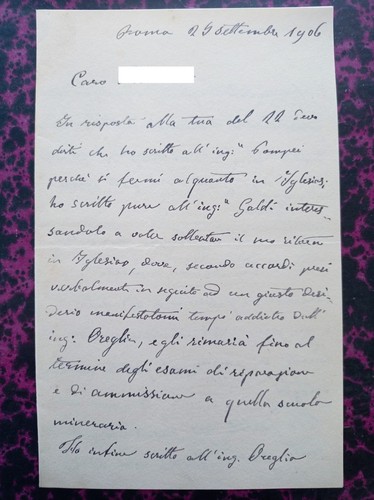 Roma 29 Settembre 1906
Caro
In risposta alla tua del 22 devo
dirti che ho scritto all'ing:re Pompei
perché si fermi alquanto in Iglesias;
ho scritto pure all'ing:re Galdi interes-
sandolo a voler sollecitare il suo ritorno
in Iglesias, dove, secondo accordi presi
verbalmente in seguito ad un giusto desi-
derio manifestatomi tempo addietro dall'
ing: Oreglia, egli rimarrà fino al
termine degli esami di riparazione
e di ammissione a quella scuola
mineraria.
Ho infine scritto all'ing. Oreglia